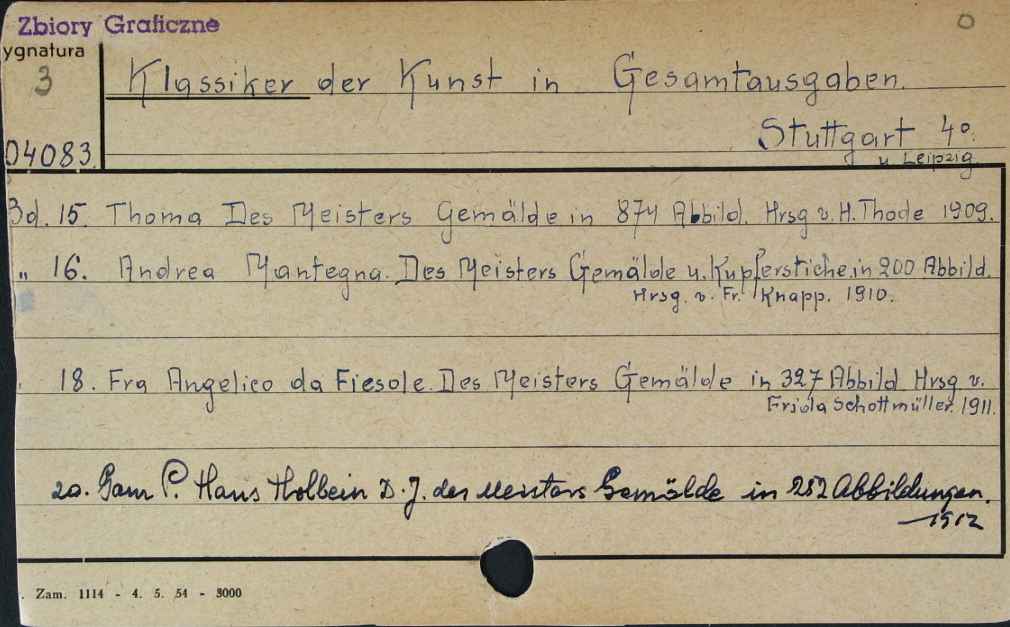 Zbiory Graficzne
ygnatura
3
Klassiker der Kunst in Gesamtausgaben.
Stuttgart 4o.
04083.
u Leipzig
Bd. 15. Thoma Des Meisters Gemälde in 874 Abbild. Hrsg v. H. Thode 1909.
„ 16. Andrea Mantegna. Des Meisters Gemälde u. Kupferstiche, in 200 Abbild.
Hrsg. v. Fr. Knapp. 1910.
18. Fra Angelico da Fiesole. Des Meisters Gemälde in 327 Abbild Hrsg v.
Frida Schottmüller. 1911.
20. P. Hans Holbein D. J. des Meisters Gemälde in 252 Abbildungen.
1912
Zam. 1114 - 4. 5. 54 - 3000